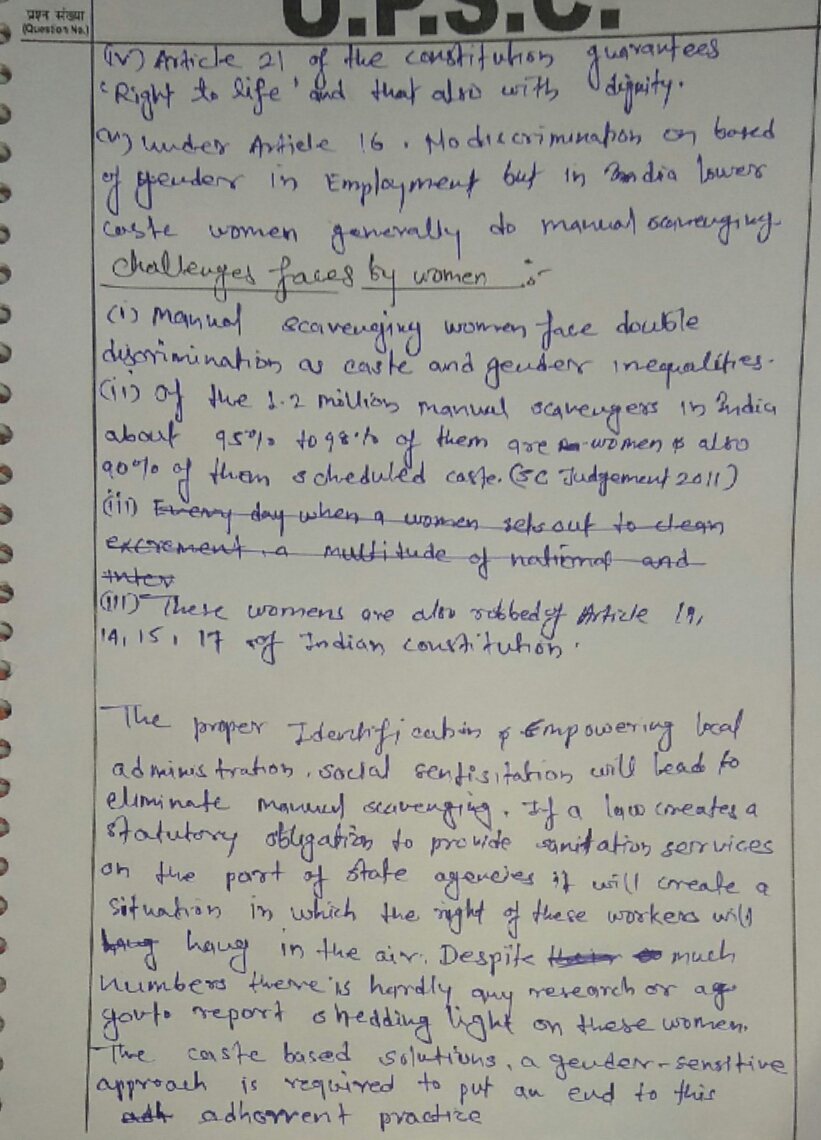 U.P.S.C.
प्रश्न संख्या
(Question No.)
(iv) Article 21 of the constitution guarantees
'Right to life' and that also with dignity.
(v) Under Article 16, No discrimination on based
of gender in Employment but in India lower
caste women generally do manual scavenging.
Challenges faces by women :-
(i) Manual scavenging women face double
discrimination as caste and gender inequalities.
(ii) Of the 1.2 million manual scavengers in India
about 95% to 98% of them are women & also
90% of them scheduled caste. (SC Judgement 2011)
(iii) Every day when a women sets out to clean
excrement, a multitude of national and
inter
(iii) These womens are also robbed of Article 19,
14, 15, 17 of Indian constitution.
The proper Identification & Empowering local
administration, social sentisitation will lead to
eliminate manual scavenging. If a law creates a
statutory obligation to provide sanitation serrvices
on the part of state agencies it will create a
situation in which the right of these workers will
haug haug in the air. Despite their so much
numbers there is hardly any research or ag
govto report shedding light on these women.
The caste based solutions, a gender-sensitive
approach is required to put an end to this
adh adhorrent practice